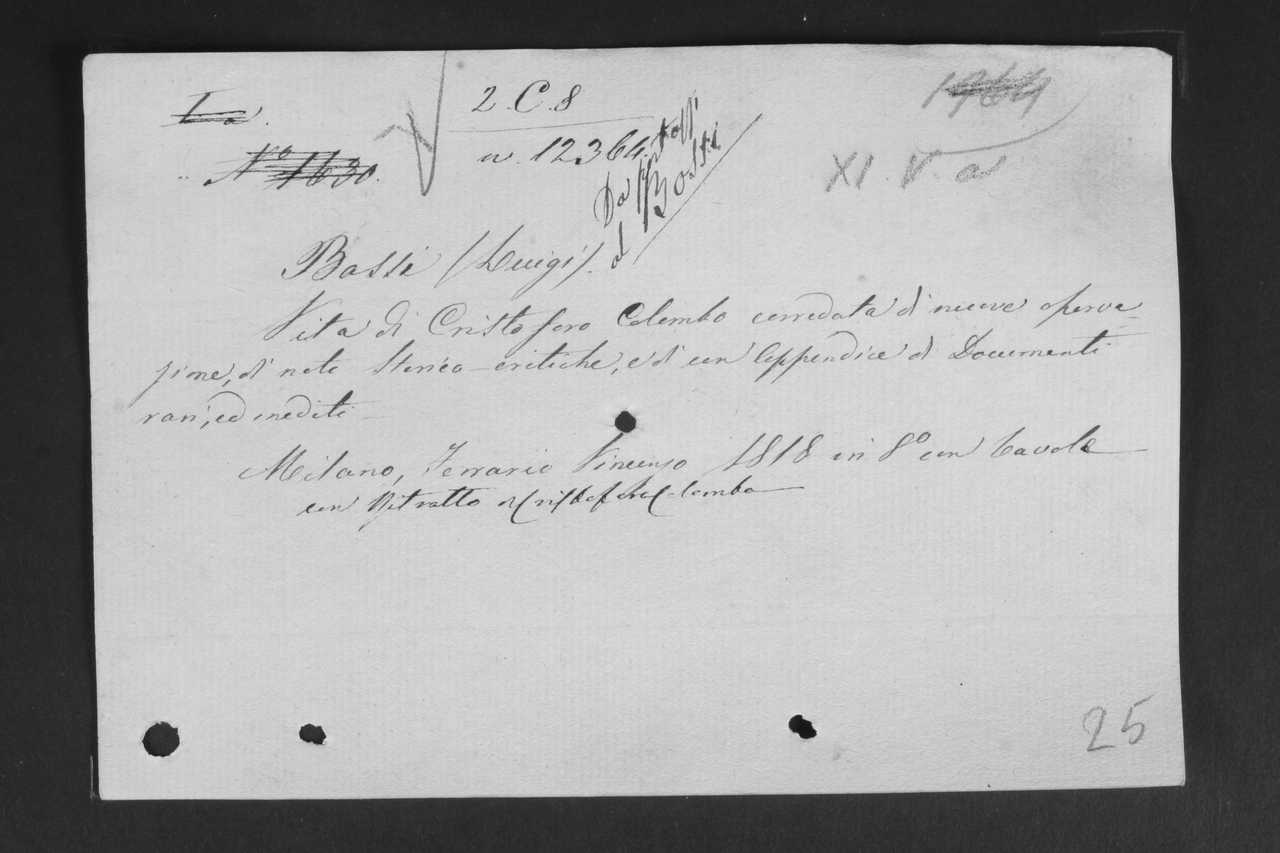 2. C. 8
n. 12364.
1764
XI. V. a
N.º 1630.
al Bossi
Bossi (Luigi).
Vita di Cristoforo Colombo corredata di nuove osserva=
zione, di note storico-critiche, e di un Appendice di Documenti
rari, ed inediti
Milano, Ferrario Vincenzo 1818 in 8º con tavole
con Ritratto di Cristoforo Colombo
25